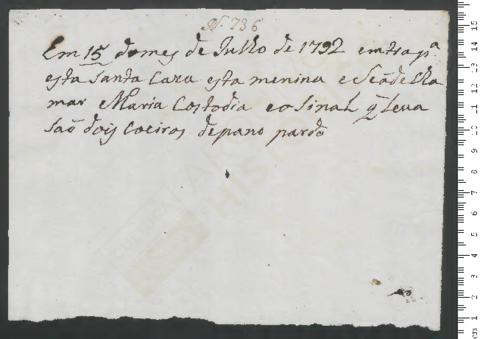 Nº 736
Em 15 do mes de Julho de 1792 emtra pª
esta Santa Caza esta menina e Se ade Cha
mar Maria Costodia e o Sinal q̃ Leva
Saõ dois Coeiros de pano pardo